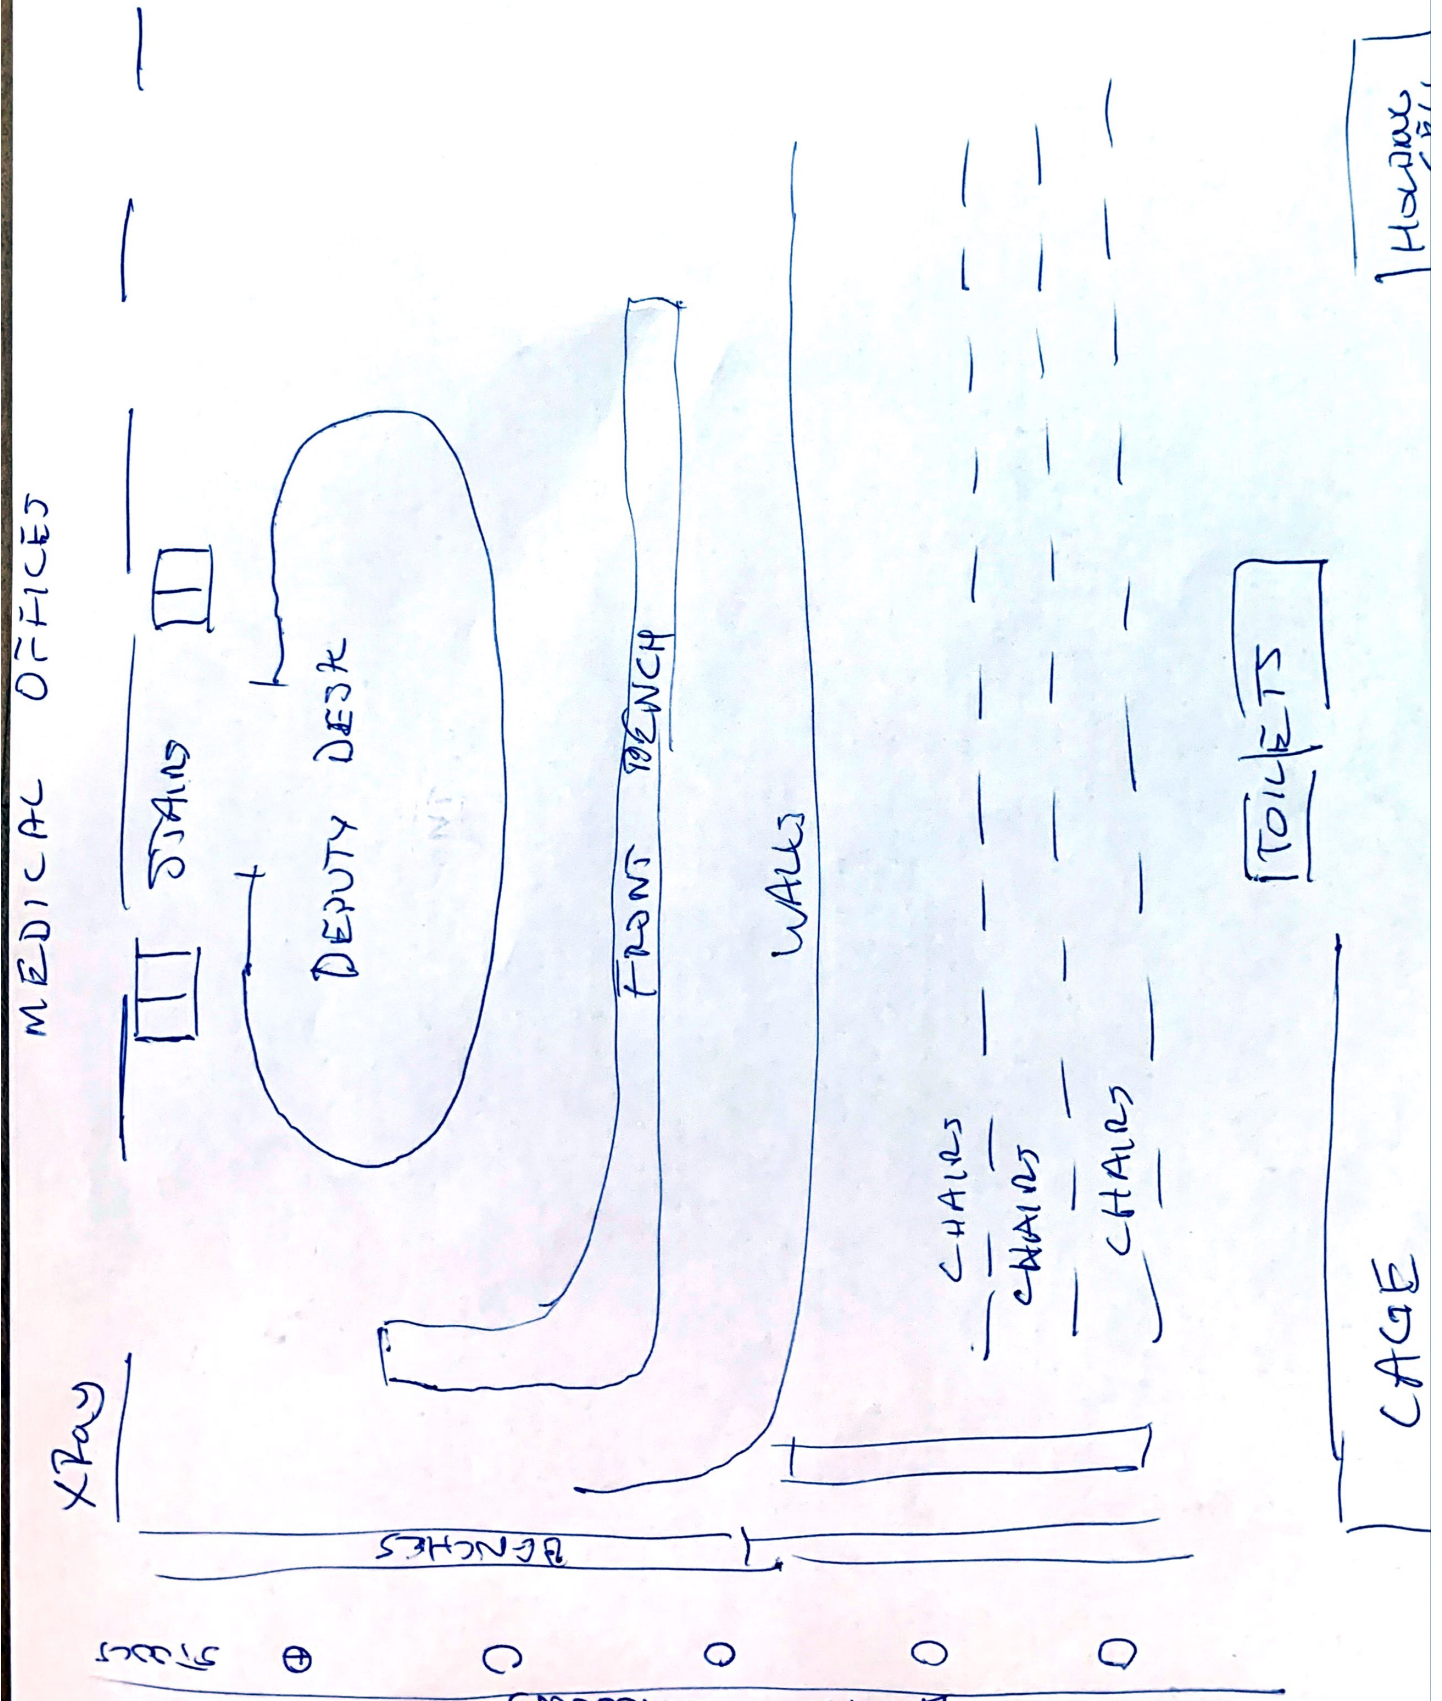 MEDICAL OFFICES
XRay
STAIRS
DEPUTY DESK
FRONT BENCH
WALKS
CHAIRS
CHAIRS
CHAIRS
TOILETS
CAGE
BENCHES